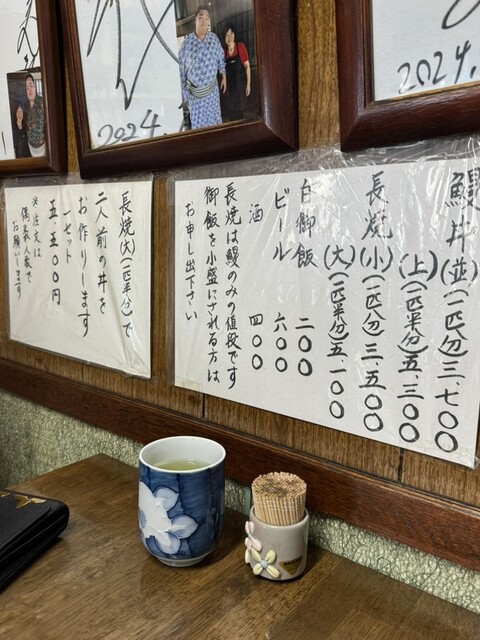 鰻丼(並)(一匹分)三、七〇〇
(上)(一匹半分)五、三〇〇
長焼(小)(一匹分)三、五〇〇
(大)(一匹半分)五、一〇〇
白御飯 二〇〇
ビール 六〇〇
酒 四〇〇
長焼は鰻のみの値段です
御飯を小盛にされる方は
お申し出下さい
長焼(大)(一匹半分)で
二人前の丼を
お作りします
一セット
五、五〇〇円
※注文は
偶数人数で
お願いします
2024.
2024.